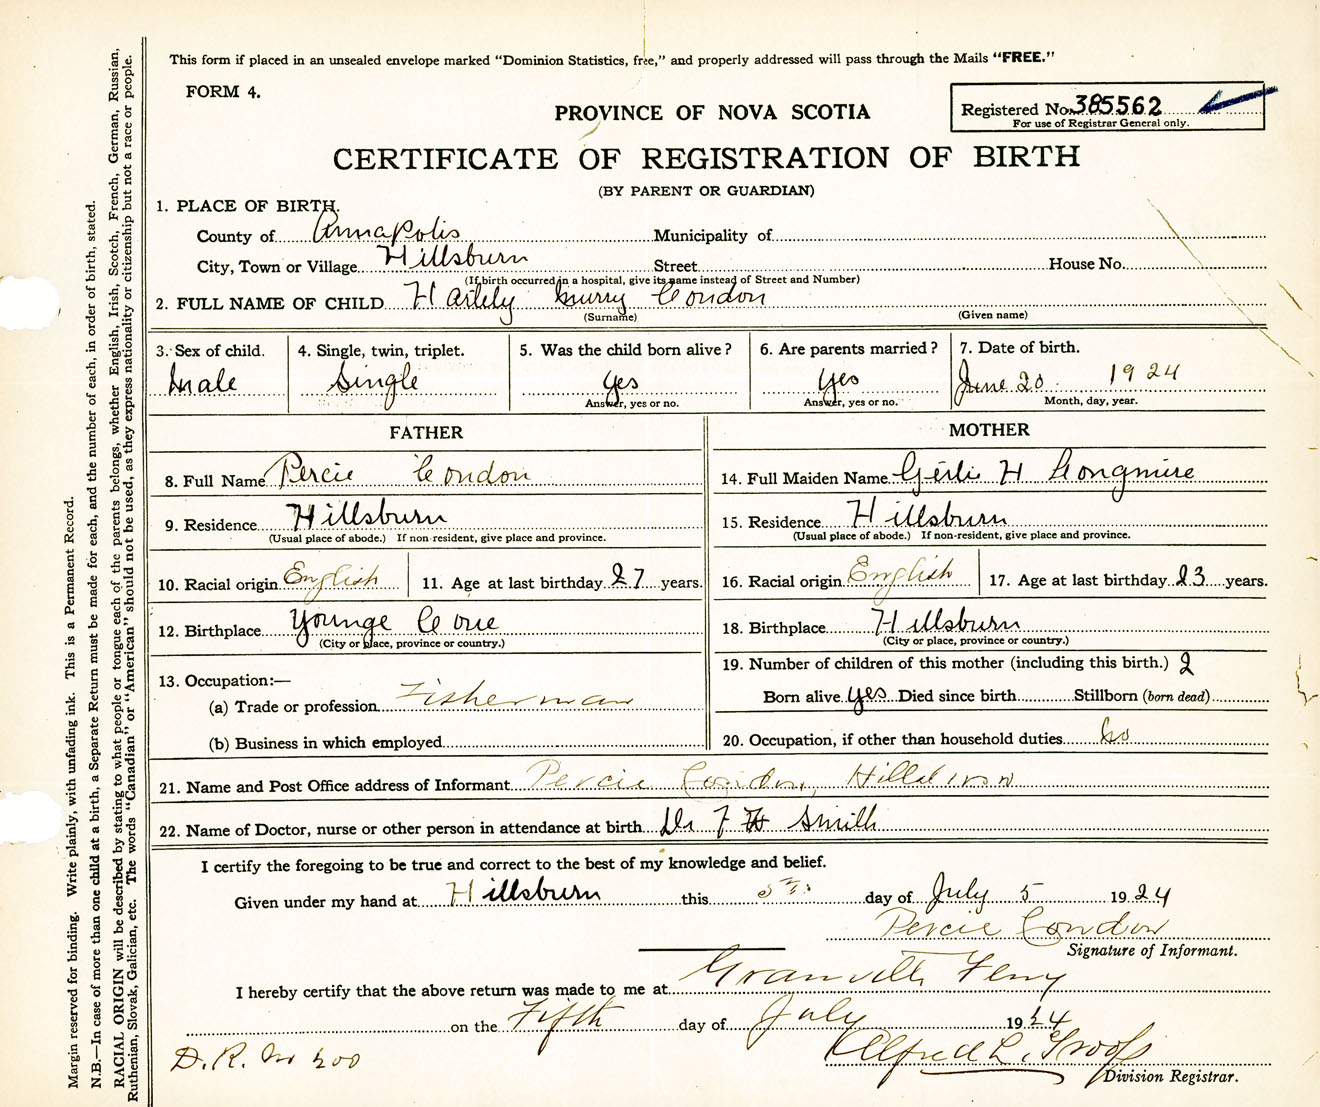 This form if placed in an unsealed envelope marked "Dominion Statistics, free," and properly addressed will pass through the Mails "FREE."
FORM 4.
PROVINCE OF NOVA SCOTIA
Registered No. 385562
For use of Registrar General only.
CERTIFICATE OF REGISTRATION OF BIRTH
(BY PARENT OR GUARDIAN)
1. PLACE OF BIRTH.
County of Annapolis Municipality of
City, Town or Village Hillsburn Street House No.
(If birth occurred in a hospital, give its name instead of Street and Number)
2. FULL NAME OF CHILD Condon
(Surname) (Given name)
3. Sex of child. 4. Single, twin, triplet. 5. Was the child born alive? 6. Are parents married? 7. Date of birth.
Male Single Yes Yes June 20 1924
Answer, yes or no. Answer, yes or no. Month, day, year.
FATHER MOTHER
8. Full Name Percie Condon 14. Full Maiden Name H Longmire
9. Residence Hillsburn 15. Residence Hillsburn
(Usual place of abode.) If non-resident, give place and province. (Usual place of abode.) If non-resident, give place and province.
10. Racial origin English 11. Age at last birthday 27 years. 16. Racial origin English 17. Age at last birthday 23 years.
12. Birthplace Younge Cove 18. Birthplace Hillsburn
(City or place, province or country.) (City or place, province or country.)
19. Number of children of this mother (including this birth.) 2
13. Occupation:—
(a) Trade or profession Fisherman Born alive yes Died since birth Stillborn (born dead)
(b) Business in which employed 20. Occupation, if other than household duties No
21. Name and Post Office address of Informant Percie Condon, Hillsburn
22. Name of Doctor, nurse or other person in attendance at birth Dr F W Smith
I certify the foregoing to be true and correct to the best of my knowledge and belief.
Given under my hand at Hillsburn this 5th day of July 5 1924
Percie Condon
Signature of Informant.
I hereby certify that the above return was made to me at Granville Ferry
on the Fifth day of July 1924
D. R. No 200 Alfred L.
Division Registrar.
Margin reserved for binding. Write plainly, with unfading ink. This is a Permanent Record.
N.B.—In case of more than one child at a birth, a Separate Return must be made for each, and the number of each, in order of birth, stated.
RACIAL ORIGIN will be described by stating to what people or tongue each of the parents belongs, whether English, Irish, Scotch, French, German, Russian,
Ruthenian, Slovak, Galician, etc. The words "Canadian" or "American" should not be used, as they express nationality or citizenship but not a race or people.